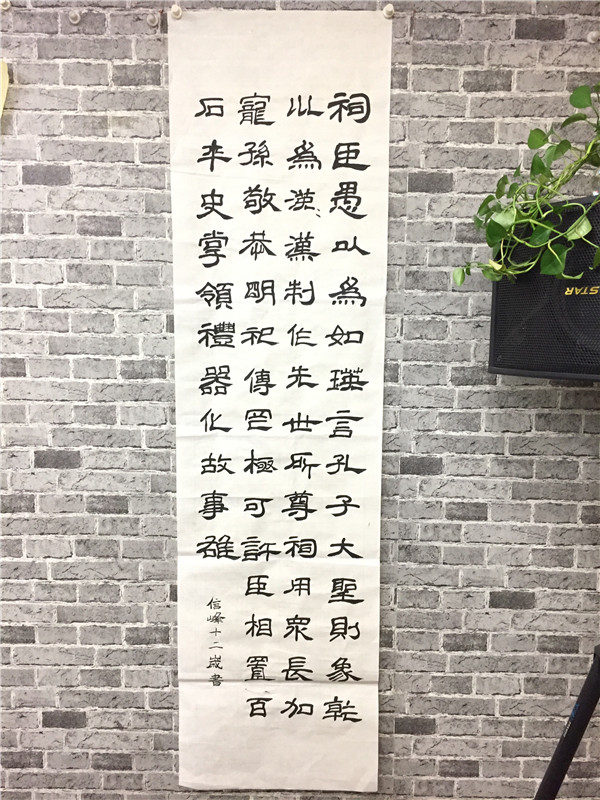 祠臣愚以為如瑛言孔子大聖則象乾
以為漢漢制作先世所尊祠用衆長加
寵孫敬恭明祀傳罔極可許臣相置百
石卒史掌領禮器化故事雒
信峰十二歲書
STAR